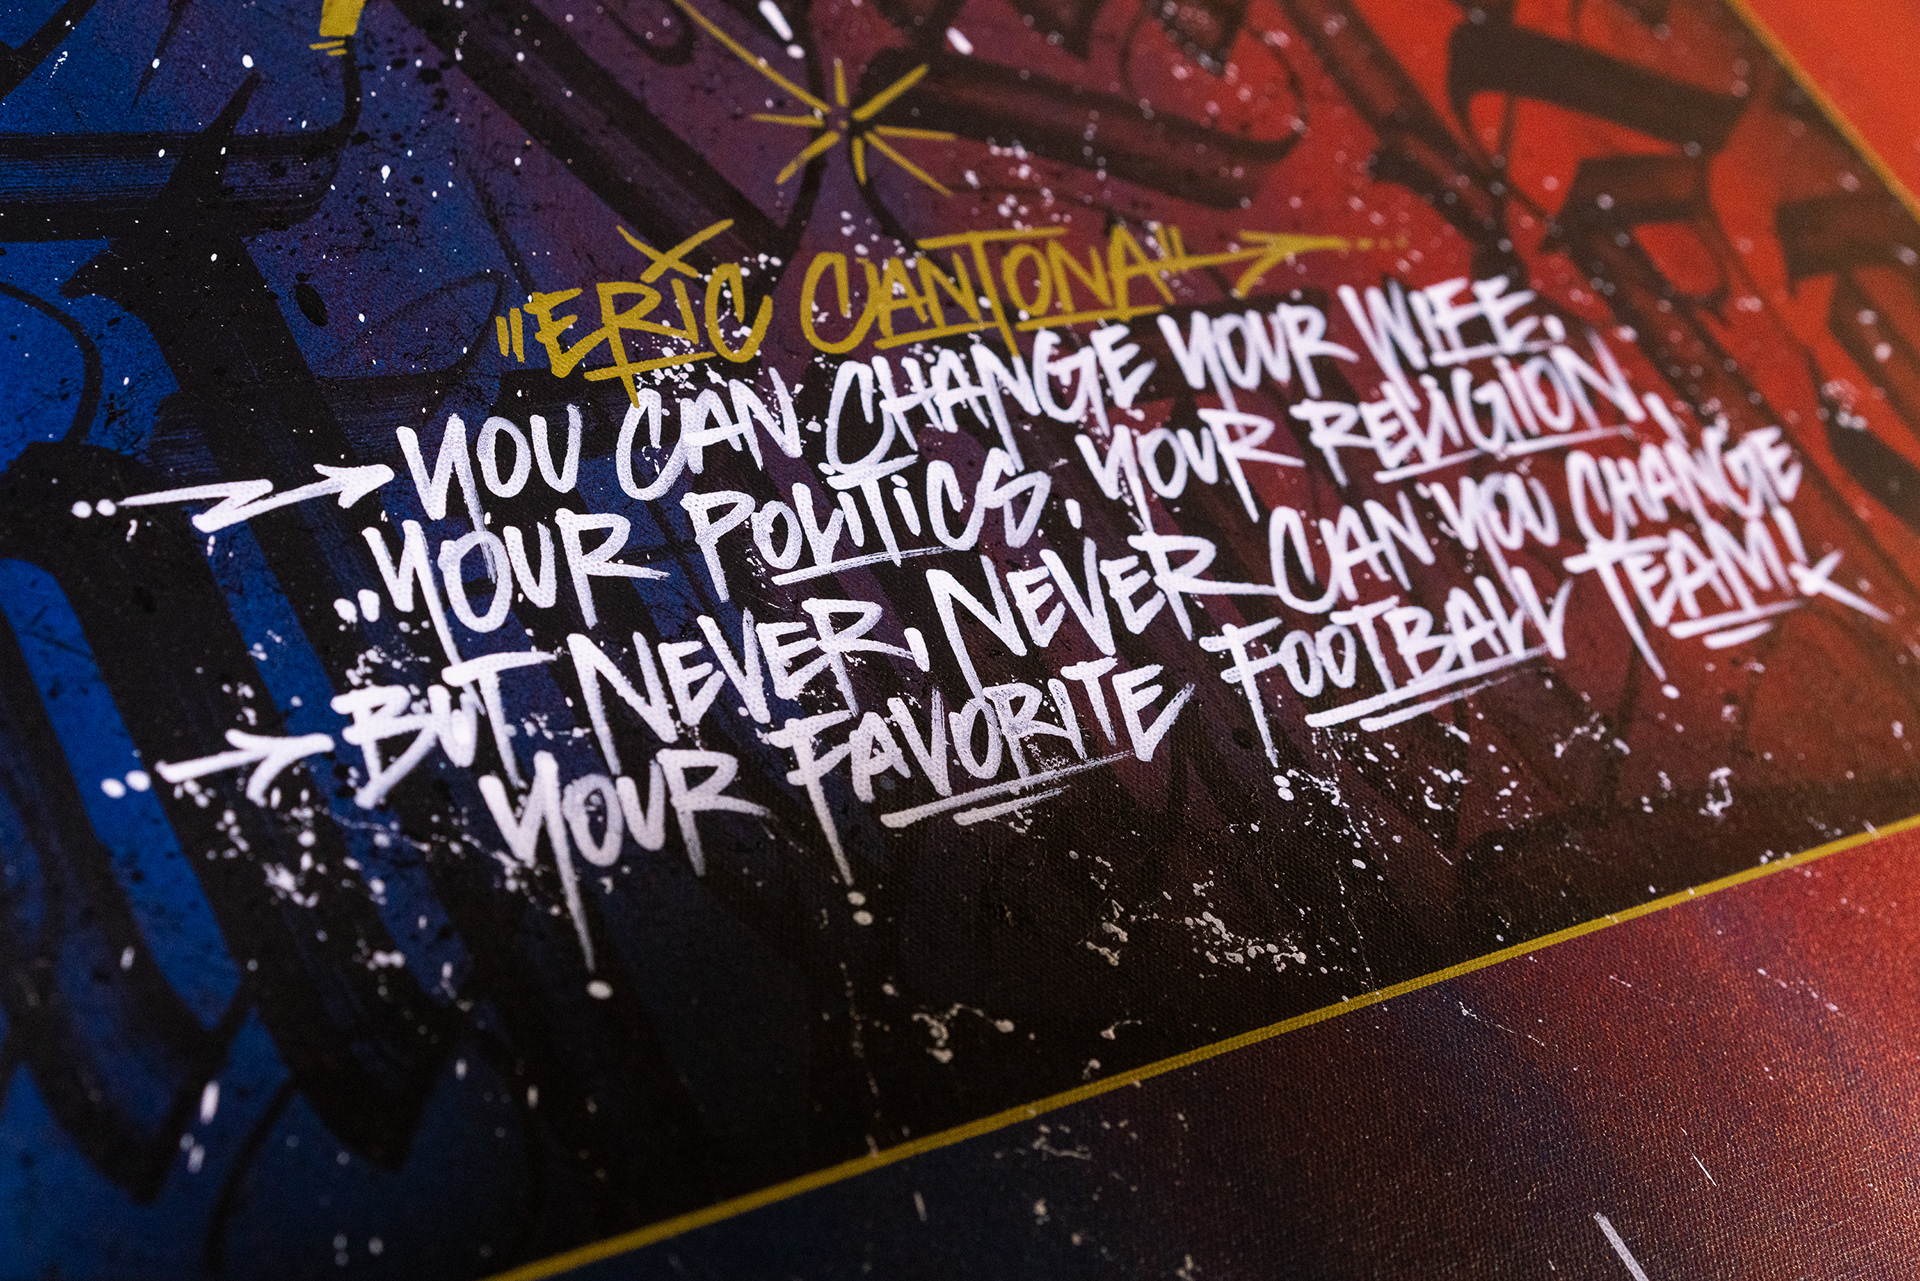 "ERIC CANTONA"
YOU CAN CHANGE YOUR WIFE,
YOUR POLITICS, YOUR RELIGION,
BUT NEVER, NEVER CAN YOU CHANGE
YOUR FAVORITE FOOTBALL TEAM!